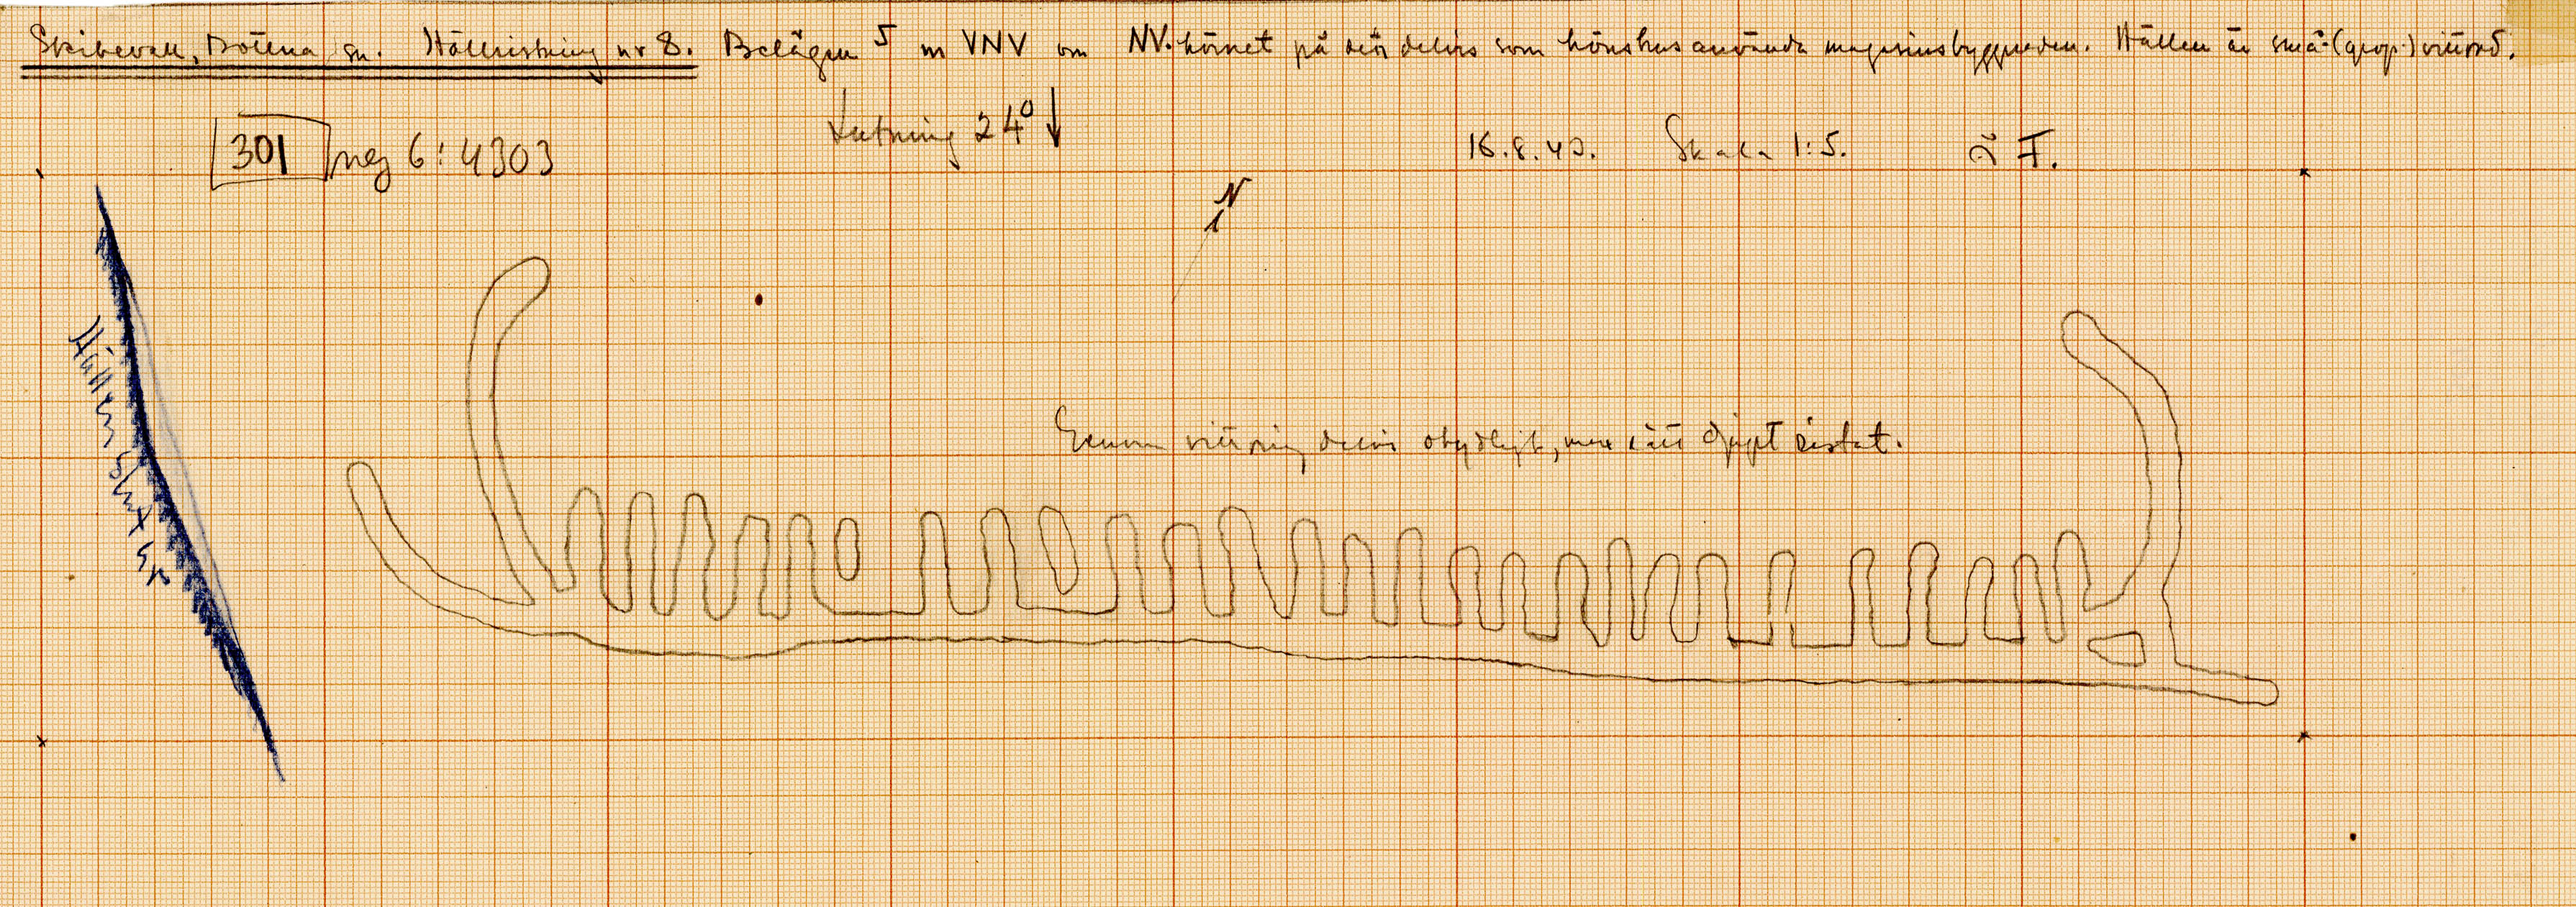 Skibevall, Bottna sn. Hällristning nr 8. Belägen 5 m VNV om NV-hörnet på den delvis som hönshus använda magasinsbyggnaden. Hällen är små-(grop-)vittrad.
Lutning 24° ↓
301 neg 6:4303
16.8.43. Skala 1:5. Å F.
N
Hällen slut
Genom vittring delvis otydligt, men rätt djupt ristat.